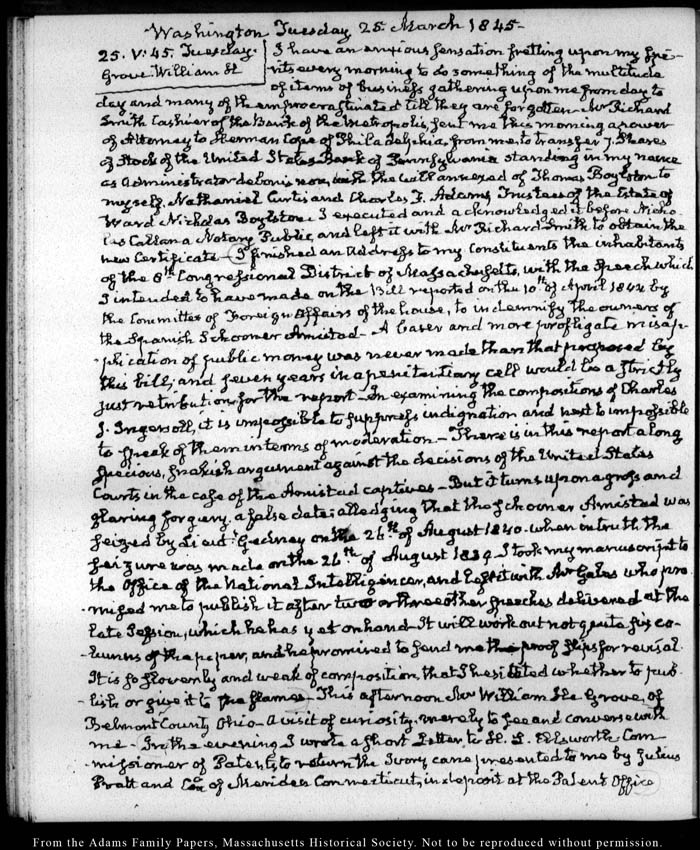 Washington Tuesday 25. March 1845-
25. V: 45. Tuesday.
Grove William Le
I have an anxious sensation fretting upon my spi-
rits every morning to do something of the multitude
of items of business gathering upon me from day to
day and many of them procrastinated till they are forgotten. Mr Richard
Smith Cashier of the Bank of the Metropolis, sent me this morning a power
of Attorney to Herman Cope of Philadelphia, from me to transfer 7. Shares
of Stock of the United States Bank of Pennsylvania standing in my name
as Administrator de bonis non, with the will annexed of Thomas Boylston to
myself, Nathaniel Curtis and Charles F. Adams Trustees of the Estate of
Ward Nicholas Boylston. I executed and acknowledged it before Nicho-
las Callan a Notary Public, and left it with Mr Richard Smith to obtain the
new Certificate - I finished an Address to my Constituents the inhabitants
of the 8th Congressional District of Massachusetts, with the Speech which
I intended to have made on the Bill reported on the 10th of April 1844 by
the Committee of Foreign Affairs of the house, to indemnify the owners of
the Spanish Schooner Amistad - A baser and more profligate misap-
-plication of public money was never made than that proposed by
this bill; and seven years in a penitentiary cell would be a strictly
just retribution for the report - In examining the compositions of Charles
J. Ingersoll, it is impossible to suppress indignation and next to impossible
to speak of them in terms of moderation - There is in this report a long
specious, snakish argument against the decisions of the United States
Courts in the case of the Amistad captives - But it turns upon a gross and
glaring forgery. a false date: alledging that the schooner Amistad was
seized by Lieut. Gedney on the 26th of August 1840. when in truth the
seizure was made on the 26th of August 1839. I took my manuscript to
the Office of the National Intelligencer, and left it with Mr Gales who pro-
-mised me to publish it after two or three other speeches delivered at the
late Session, which he has yet on hand - It will work out not quite six co-
-lumns of the paper, and he promised to send me the proof slips for revisal.
It is so slovenly and weak of composition, that I hesitated whether to pub-
-lish or give it to the flames - This afternoon Mr William Le Grove, of
Belmont County Ohio - A visit of curiosity. merely to see and converse with
me - In the evening I wrote a short Letter to H. L. Ellsworth Com-
-missioner of Patents, to return the Ivory cane presented to me by Julius
Pratt and Co of Meriden Connecticut, in deposit at the Patent Office
From the Adams Family Papers, Massachusetts Historical Society. Not to be reproduced without permission.